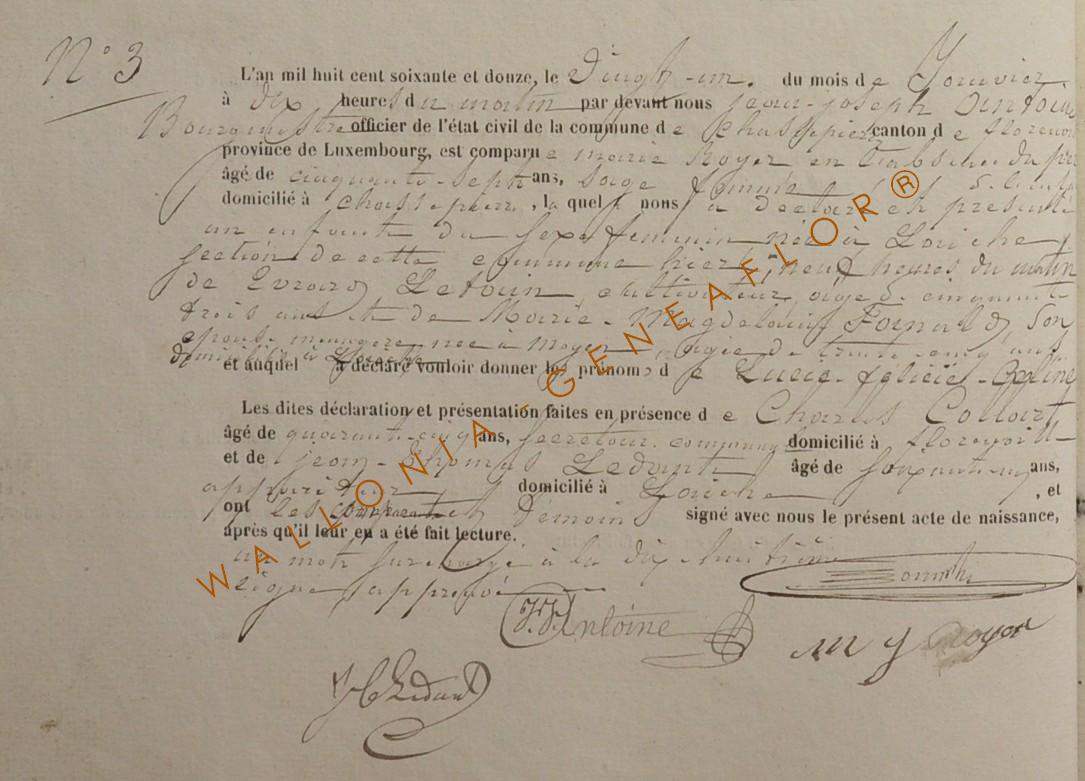 N° 3
L'an mil huit cent soixante et douze, le Vingt-un. du mois de Janvier
à dix heures du matin par devant nous jean-joseph Antoine
Bourgmestre officier de l'état civil de la commune de Chassepierre canton de florenv
province de Luxembourg, est comparue marie Royer en l'absence du pè
âgé de cinquante-sept ans, sage femme
domicilié à Chassepierre, la quelle nous a déclaré et présenté
un enfant du sexe feminin née à Laiche,
section de cette commune hier, neuf heures du matin
de Evrard Ledoin, cultivateur, âgé de cinquante
trois ans et de Marie-Magdelaine son
épouse, menagère née à Moyen, agée de trente cinq ans
domiciliés à Laiche
et auquel a déclaré vouloir donner les prénoms de Lucie-félicie-Celine
Les dites déclaration et présentation faites en présence de Charles Collart
âgé de quarante-cinq ans, secretaire communal domicilié à florenville
et de jean-thomas Ledant âgé de soixante ans,
domicilié à Laiche, et
ont les comparants temoins signé avec nous le présent acte de naissance,
après qu'il leur en a été fait lecture.
un mot surchargé à la dix huitième
ligne approuvé
JJ Antoine
M J Royer
Ledant
WALLONIA - GENEAFLOR®